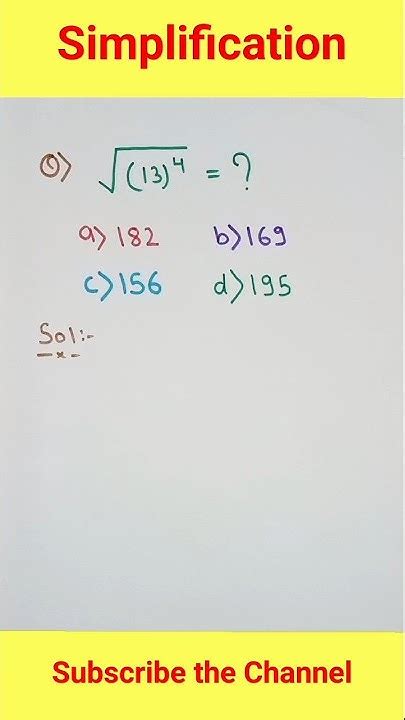 Simplification
Q> √(13)⁴ = ?
a> 182 b> 169
c> 156 d> 195
Sol:-
Subscribe the Channel